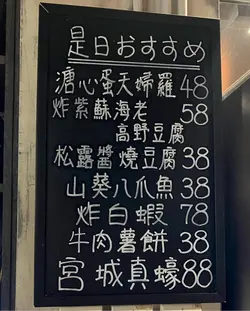 是日おすすめ
溏心蛋天婦羅 48
炸紫蘇海老 58
高野豆腐
松露醬燒豆腐 38
山葵八爪魚 38
炸白蝦 78
牛肉薯餅 38
宮城真蠔 88